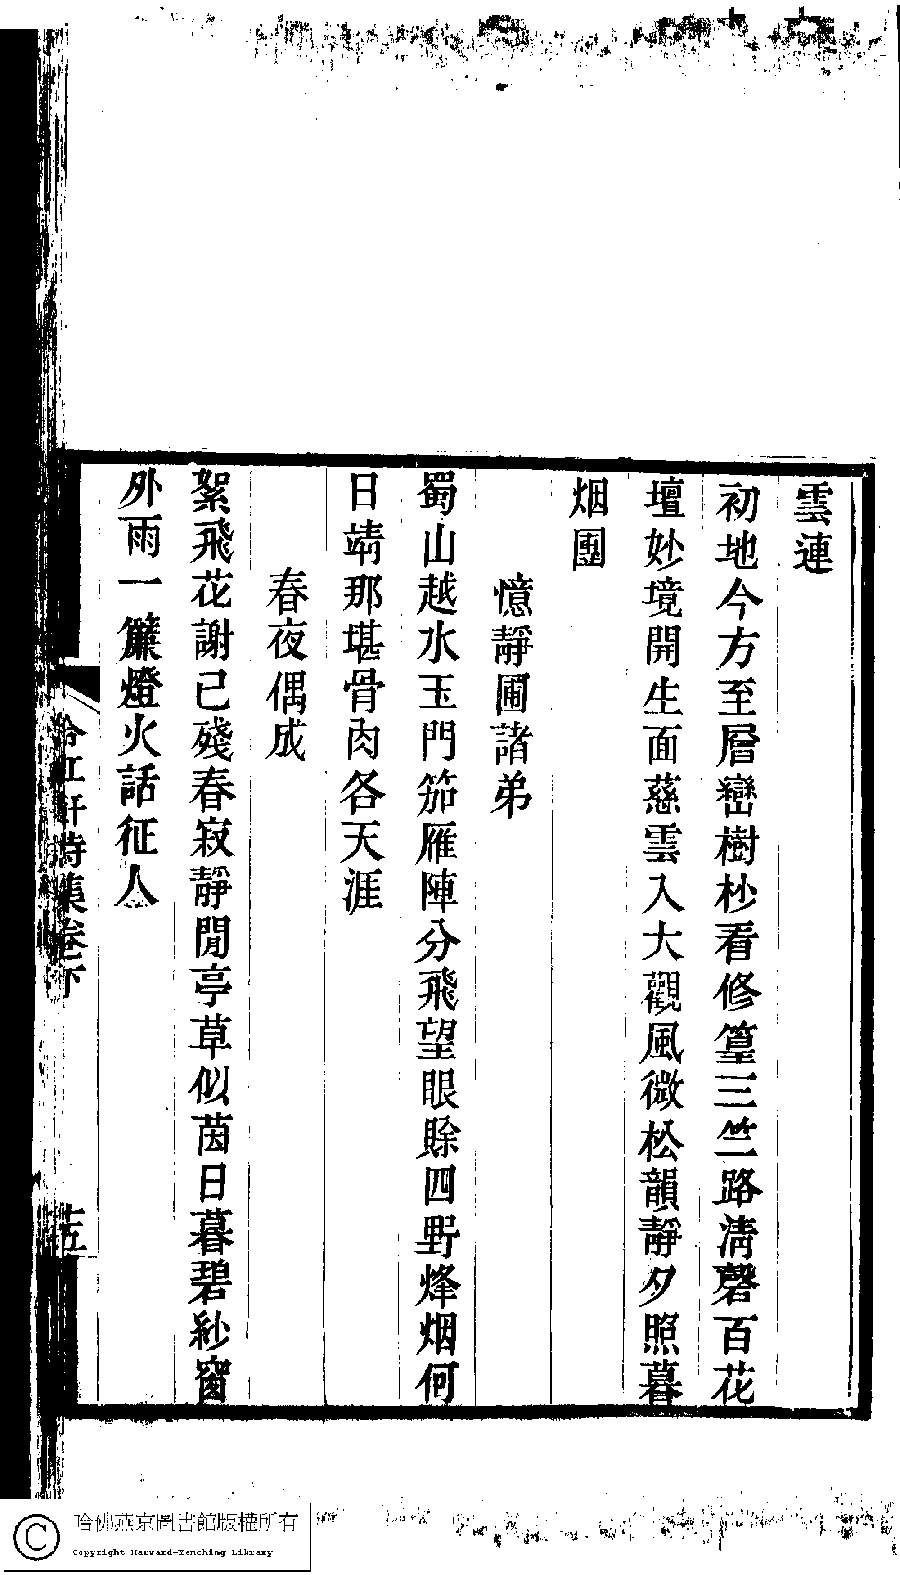 雲連
初地今方至層巒樹杪看修篁三竺路淸磬百花
壇妙境開生面慈雲入大觀風微松韻靜夕照暮
烟團
憶靜圃諸弟
蜀山越水玉門笳雁陣分飛望眼賖四野烽烟何
日靖那堪骨肉各天涯
春夜偶成
絮飛花謝已殘春寂靜閒亭草似茵日暮碧紗窗
外雨一簾燈火話征人
紅軒詩集卷下
十五
哈佛燕京圖書館版權所有
Copyright Harvard-Yenching Library